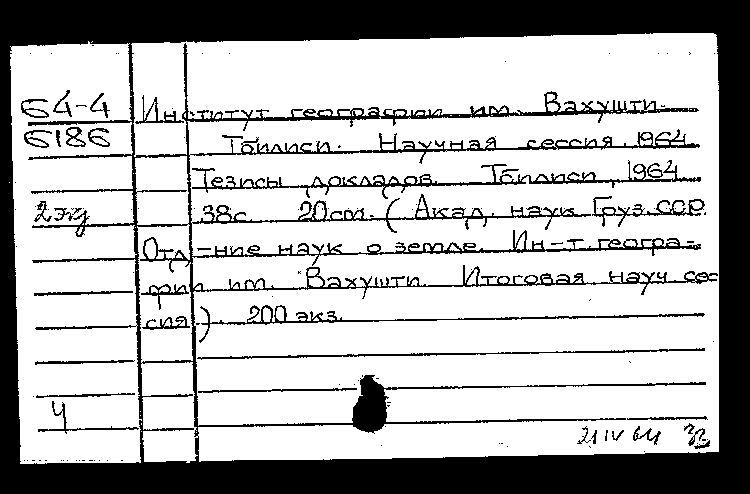 64-4 Институт географии им. Вахушти.
6186 Тбилиси. Научная сессия. 1964.
Тезисы докладов. Тбилиси, 1964
2 экз 38с 20cm. (Акад. наук Груз.ССР.
Отд-ние наук о земле. Ин-т. геогра-
фии им. Вахушти. Итоговая науч сес-
сия). 200 экз.
Ч
21 IV 64